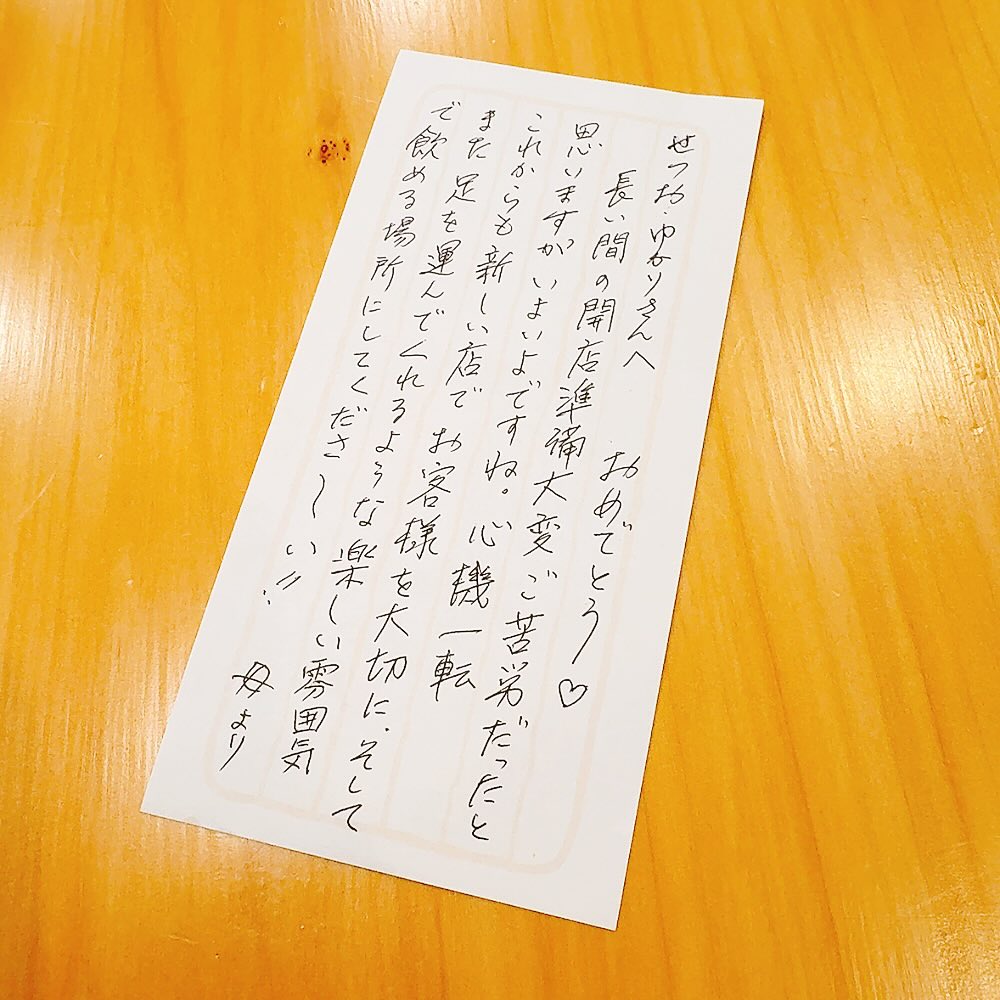 せつお・ゆかりさんへ
おめでとう♡
長い間の開店準備大変ご苦労だったと
思いますがいよいよですね。心機一転
これからも新しい店でお客様を大切に、そして
また足を運んでくれるような楽しい雰囲気
で飲める場所にしてくださ〜い!!
母より